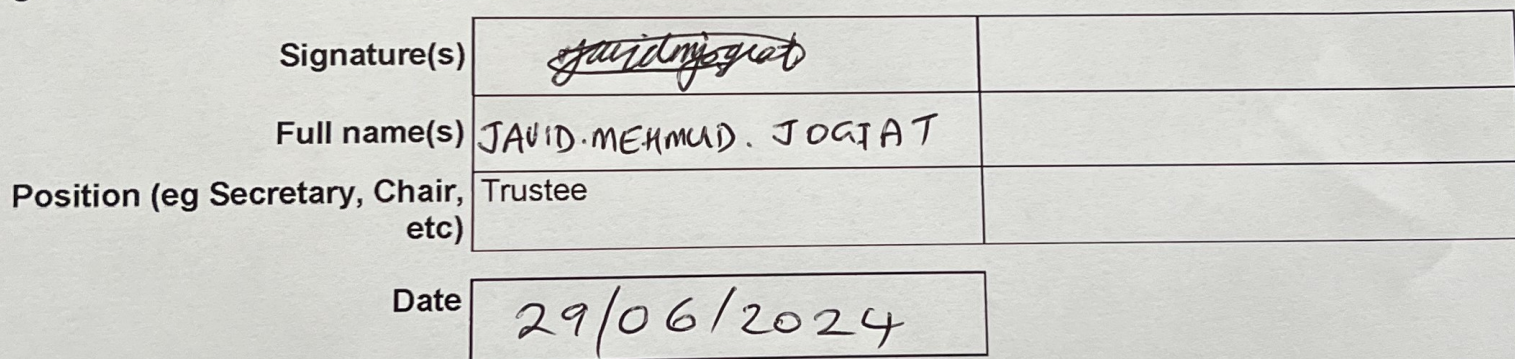 Signature(s) Javidmjogiat
Full name(s) JAVID.MEHMUD. JOGIAT
Position (eg Secretary, Chair, Trustee
etc)
Date 29/06/2024